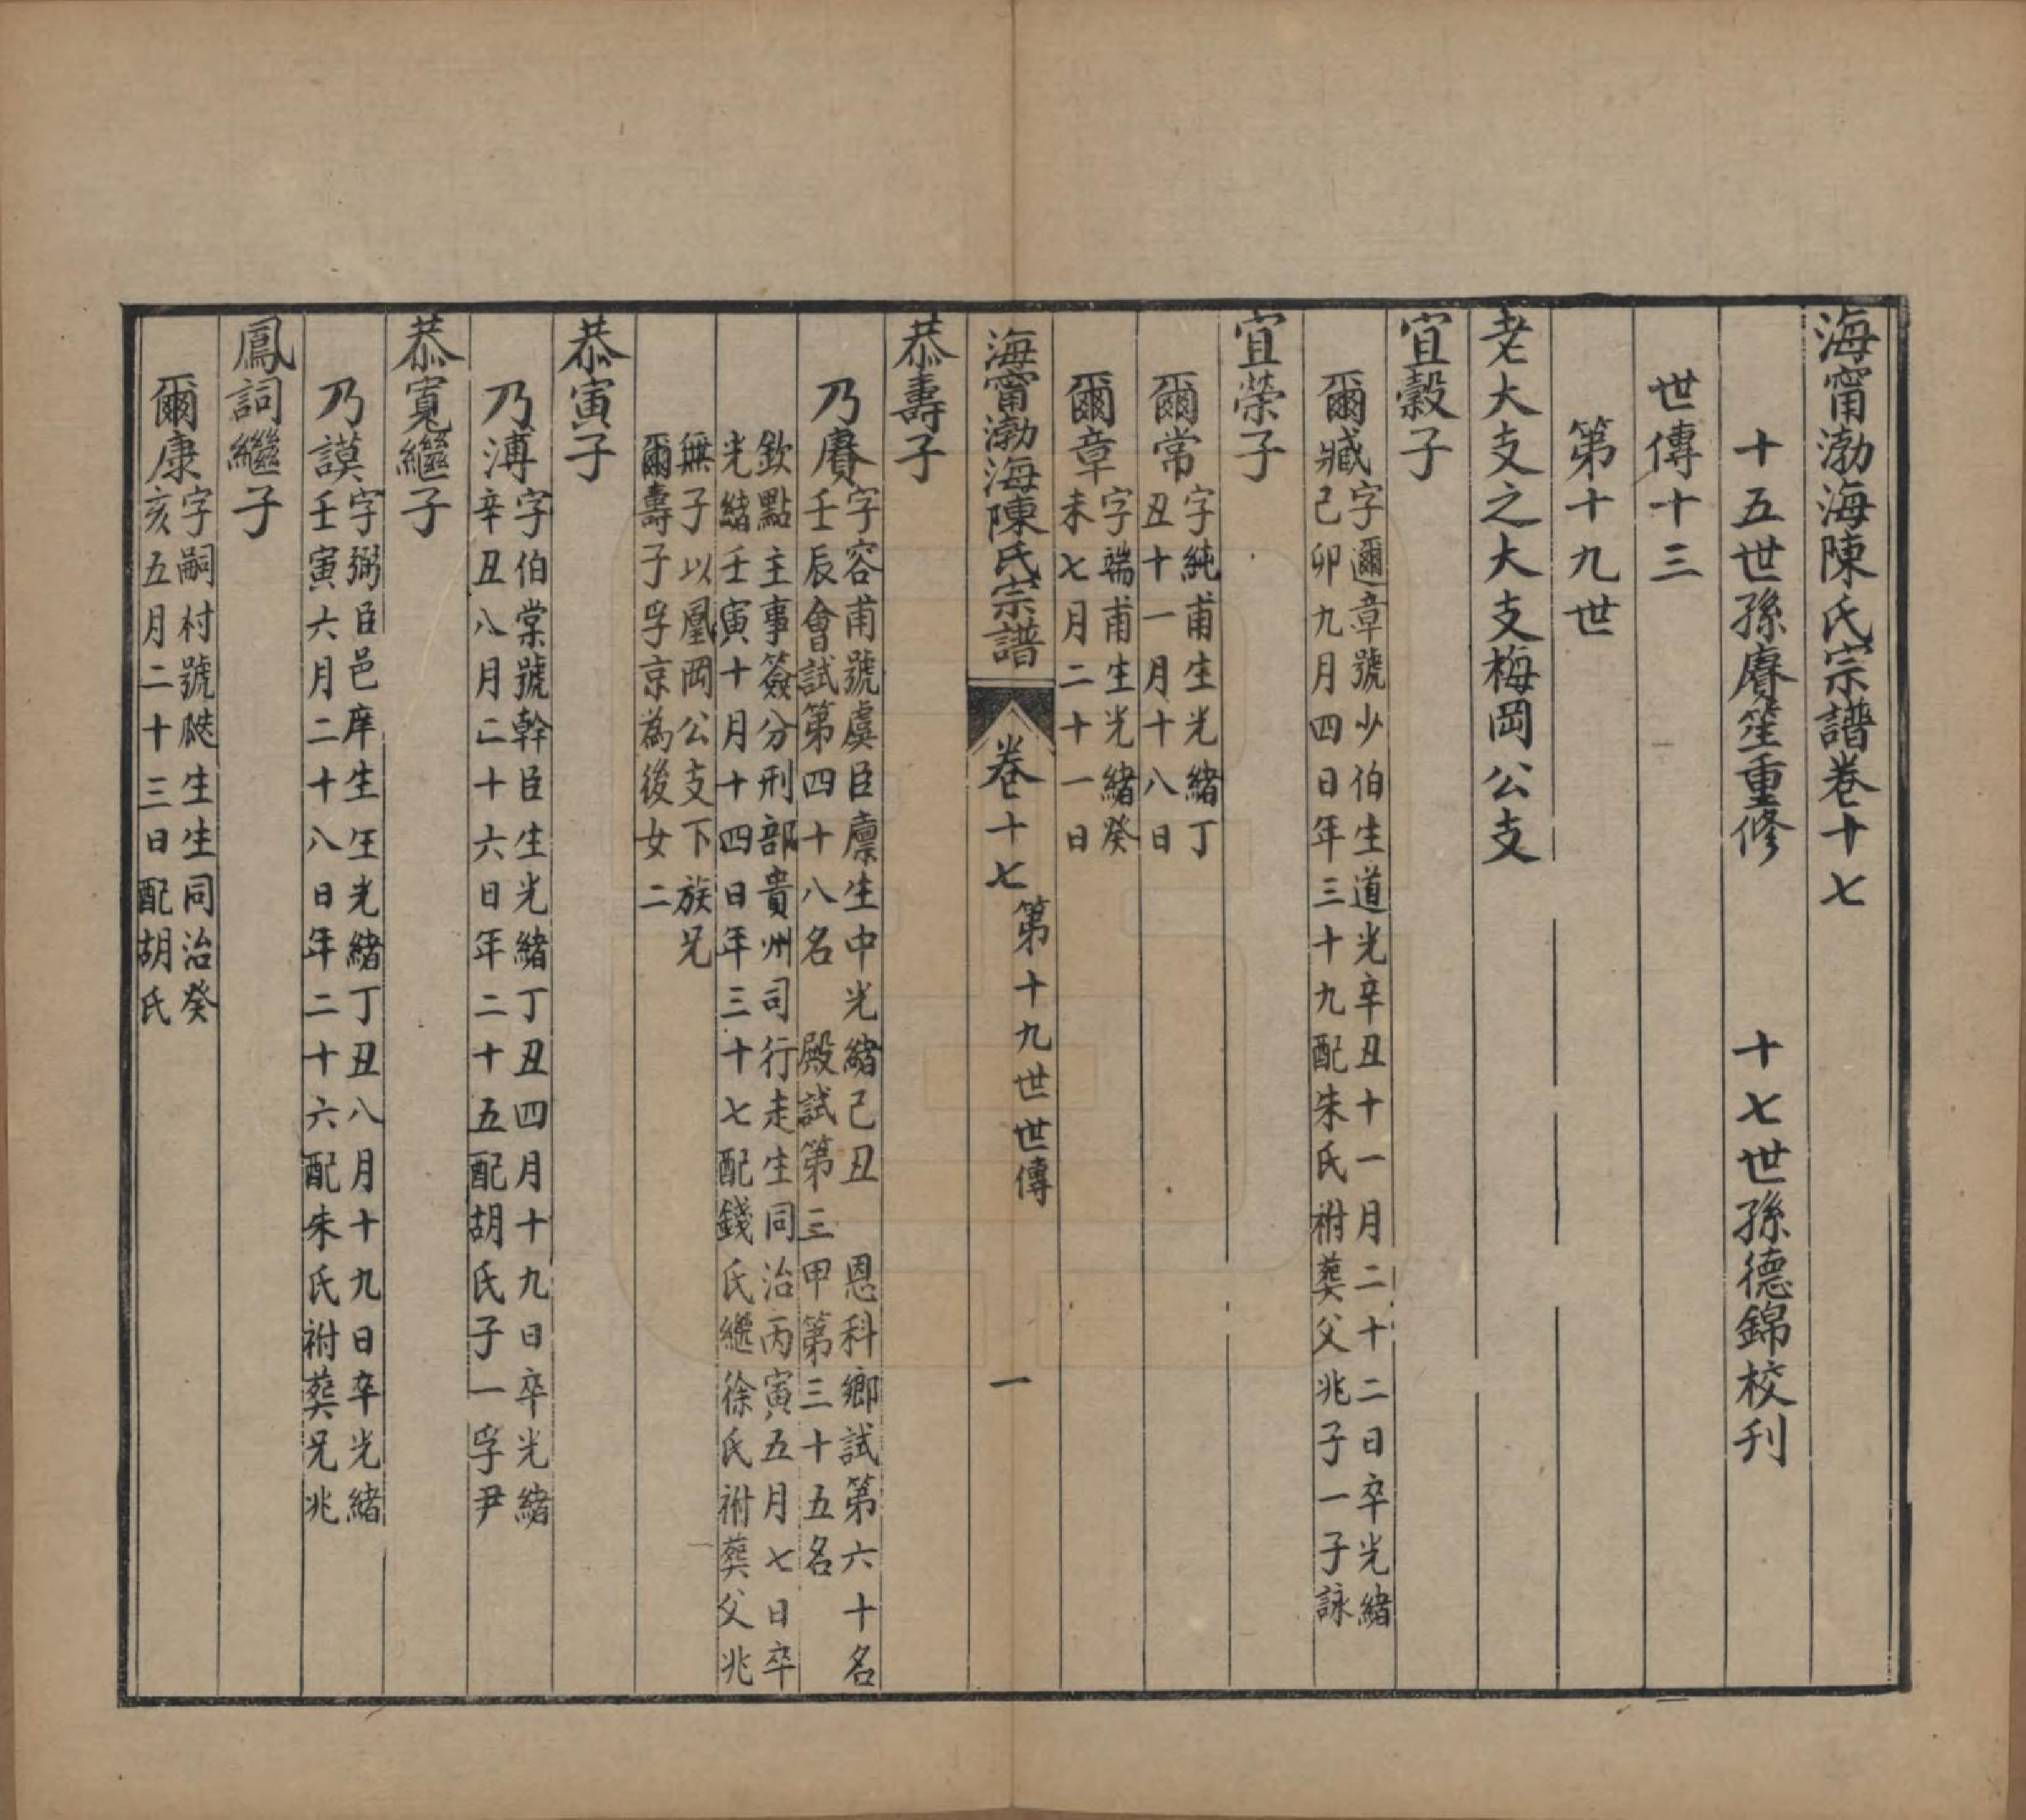 海甯渤海陳氏宗譜卷十七
十五世孫賡笙重修
十七世孫德錦校刋
世傳十三
第十九世
老大支之大支梅岡公支
宜穀子
爾臧
字邇章號少伯生道光辛丑十一月二十二日卒光緒
己卯九月四日年三十九配朱氏祔葬父兆子一子詠
宜榮子
爾常
字純甫生光緒丁
丑十一月十八日
爾章
字端甫生光緒癸
未七月二十一日
海甯渤海陳氏宗譜
卷十七
第十九世世傳
一
恭壽子
乃賡
字容甫號虞臣廪生中光緒己丑 恩科鄉試第六十名
壬辰會試第四十八名 殿試第三甲第三十五名
欽點主事簽分刑部貴州司行走生同治丙寅五月七日卒
光緒壬寅十月十四日年三十七配錢氏繼徐氏祔葬父兆
無子以鳳岡公支下族兄
爾壽子孚京為後女二
恭寅子
乃溥
字伯棠號幹臣生光緒丁丑四月十九日卒光緒
辛丑八月二十六日年二十五配胡氏子一孚尹
恭寬繼子
乃謨
字弼臣邑庠生生光緒丁丑八月十九日卒光緒
壬寅六月二十八日年二十六配朱氏祔葬兄兆
鳳詞繼子
爾康
字嗣村號 生生同治癸
亥五月二十三日配胡氏